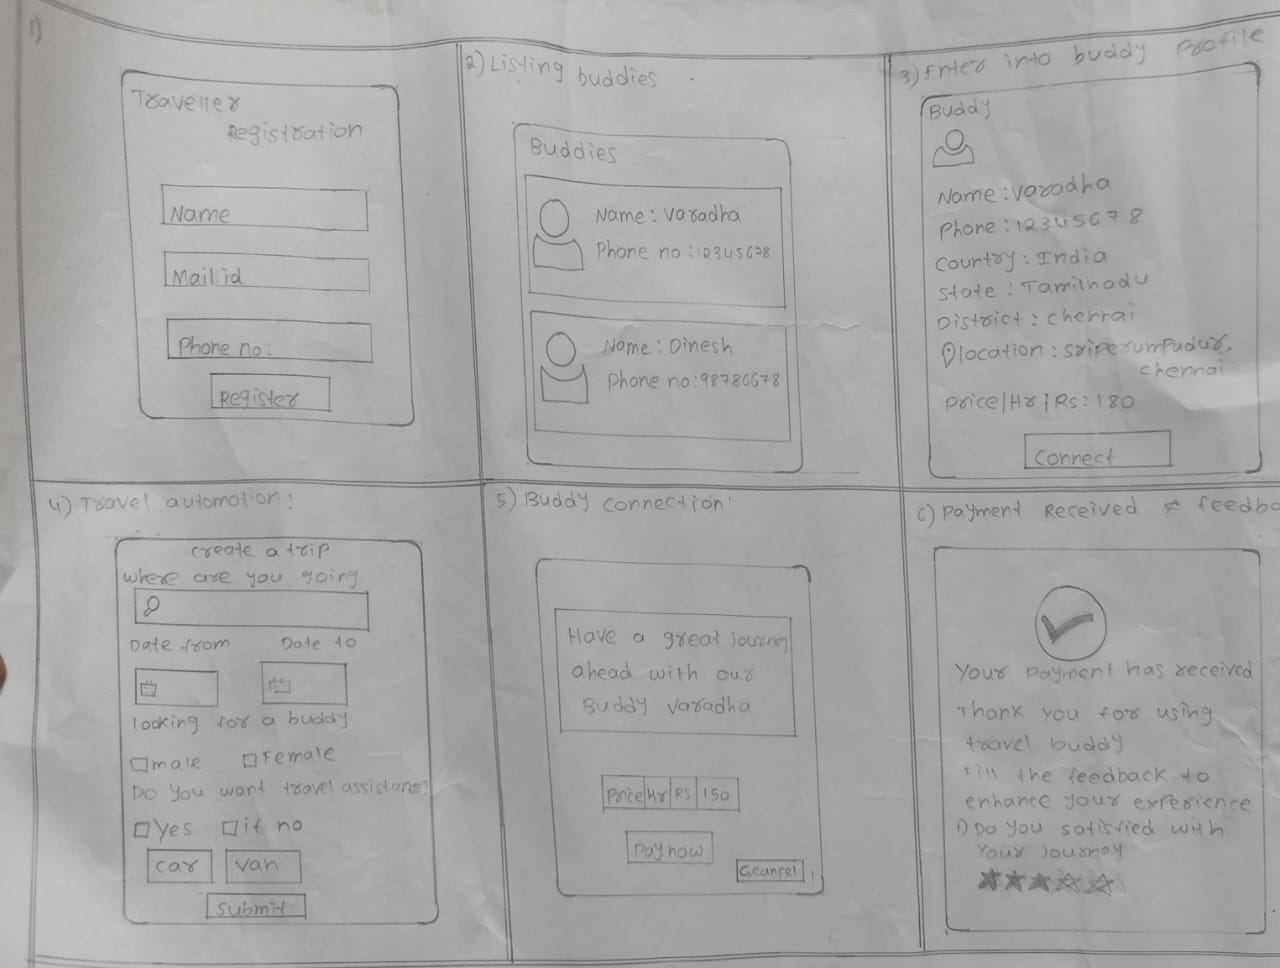 1)
Traveller
Registration
Name
Mail id
Phone no:
Register
2) Listing buddies
Buddies
Name: Varadha
Phone no:12345678
Name: Dinesh
Phone no:98786678
3) Enter into buddy Profile
Buddy
Name:Varadha
Phone:12345678
Country: India
State: Tamilnadu
District: Chennai
location: Sriperumpudur,
Chennai
Price/Hr/Rs:180
Connect
4) Travel automotion:
Create a trip
where are you going
Date from Date to
looking for a buddy
male Female
Do you want travel assistance?
Yes if no
car van
Submit
5) Buddy connection:
Have a great journey
ahead with our
Buddy Varadha
Price Hr RS 150
Pay now
cancel
6) Payment Received & feedba
Your payment has received
Thank you for using
travel buddy
Fill the feedback to
enhance your experience
1) Do you satisfied with
Your journey